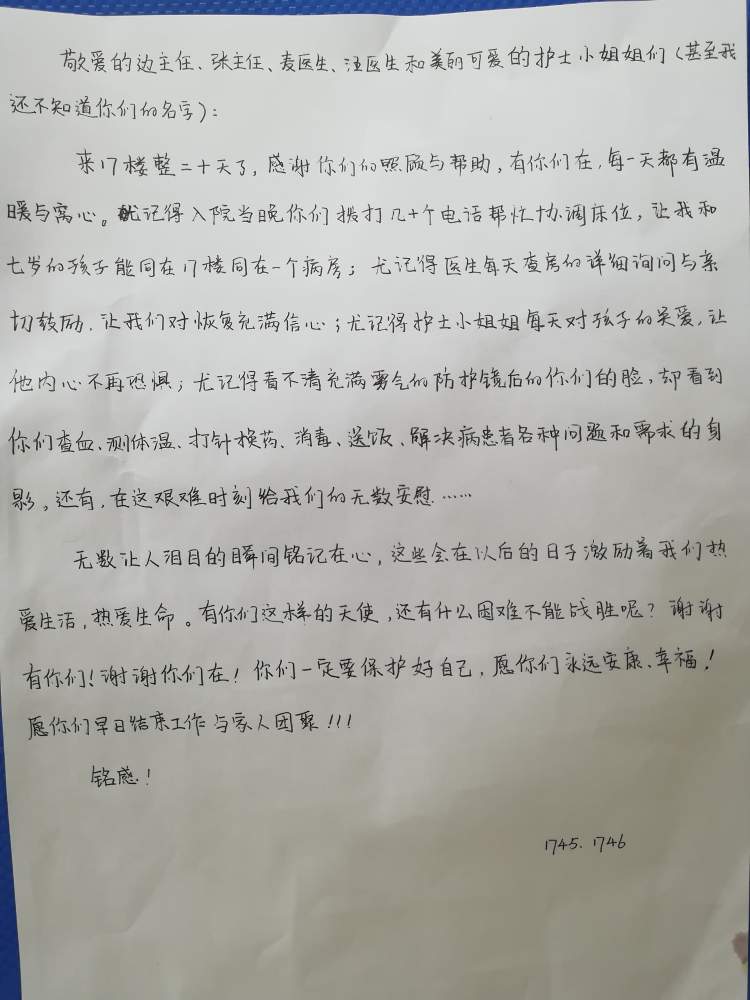 敬爱的边主任、张主任、麦医生、汪医生和美丽可爱的护士小姐姐们（甚至我
还不知道你们的名字）：
来17楼整二十天了，感谢你们的照顾与帮助，有你们在，每一天都有温
暖与窝心。尤记得入院当晚你们拨打几十个电话帮忙协调床位，让我和
七岁的孩子能同在17楼同在一个病房；尤记得医生每天查房的详细询问与亲
切鼓励，让我们对恢复充满信心；尤记得护士小姐姐每天对孩子的关爱，让
他内心不再恐惧；尤记得看不清充满雾气的防护镜后的你们的脸，却看到
你们查血、测体温、打针换药、消毒、送饭、解决病患者各种问题和需求的身
影。还有，在这艰难时刻给我们的无数安慰……
无数让人泪目的瞬间铭记在心，这些会在以后的日子激励着我们热
爱生活，热爱生命。有你们这样的天使，还有什么困难不能战胜呢？谢谢
有你们！谢谢你们在！你们一定要保护好自己，愿你们永远安康、幸福！
愿你们早日结束工作与家人团聚！！！
铭感！
1745. 1746